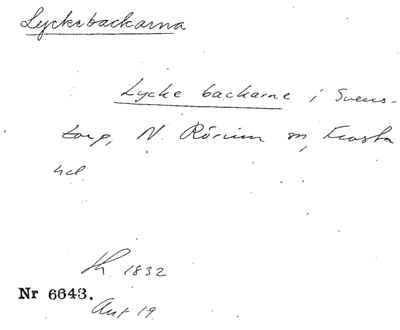 Lyckebackarna
Lycke backarne i Svens-
torp, N. Rörum sn, Frosta
hd
Lk. 1832
Nr 6643.
Ant 19